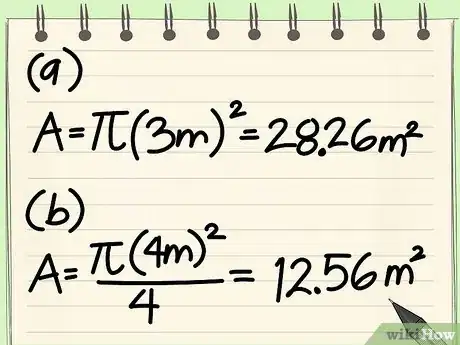 (a)
A=π(3m)²=28.26m²
(b)
A=π(4m)²/4 = 12.56m²
wikiHow